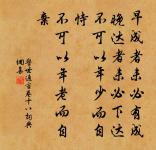 早成者未必有成
晚達者未必不達
不可以年少而自
恃
不可以年老而自
棄
警世通言卷十八詞典